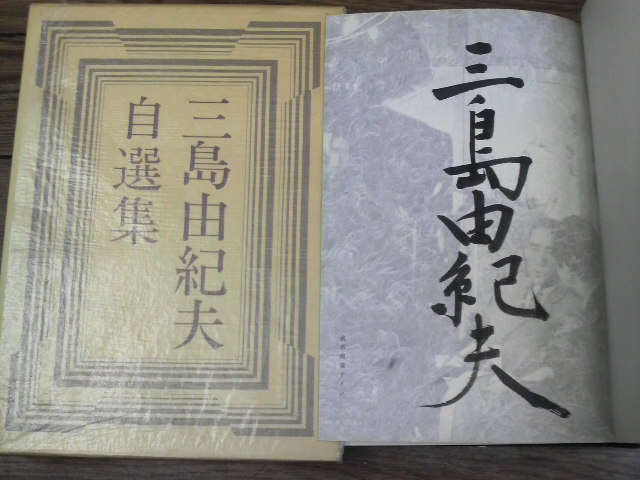 三島由紀夫
自選集
三島由紀夫